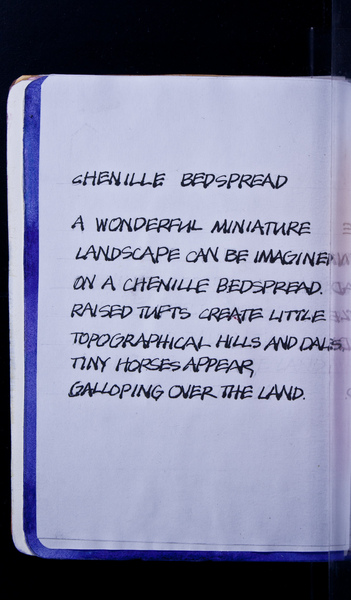 CHENILLE BEDSPREAD
A WONDERFUL MINIATURE
LANDSCAPE CAN BE IMAGINED
ON A CHENILLE BEDSPREAD.
RAISED TUFTS CREATE LITTLE
TOPOGRAPHICAL HILLS AND DALES.
TINY HORSES APPEAR,
GALLOPING OVER THE LAND.